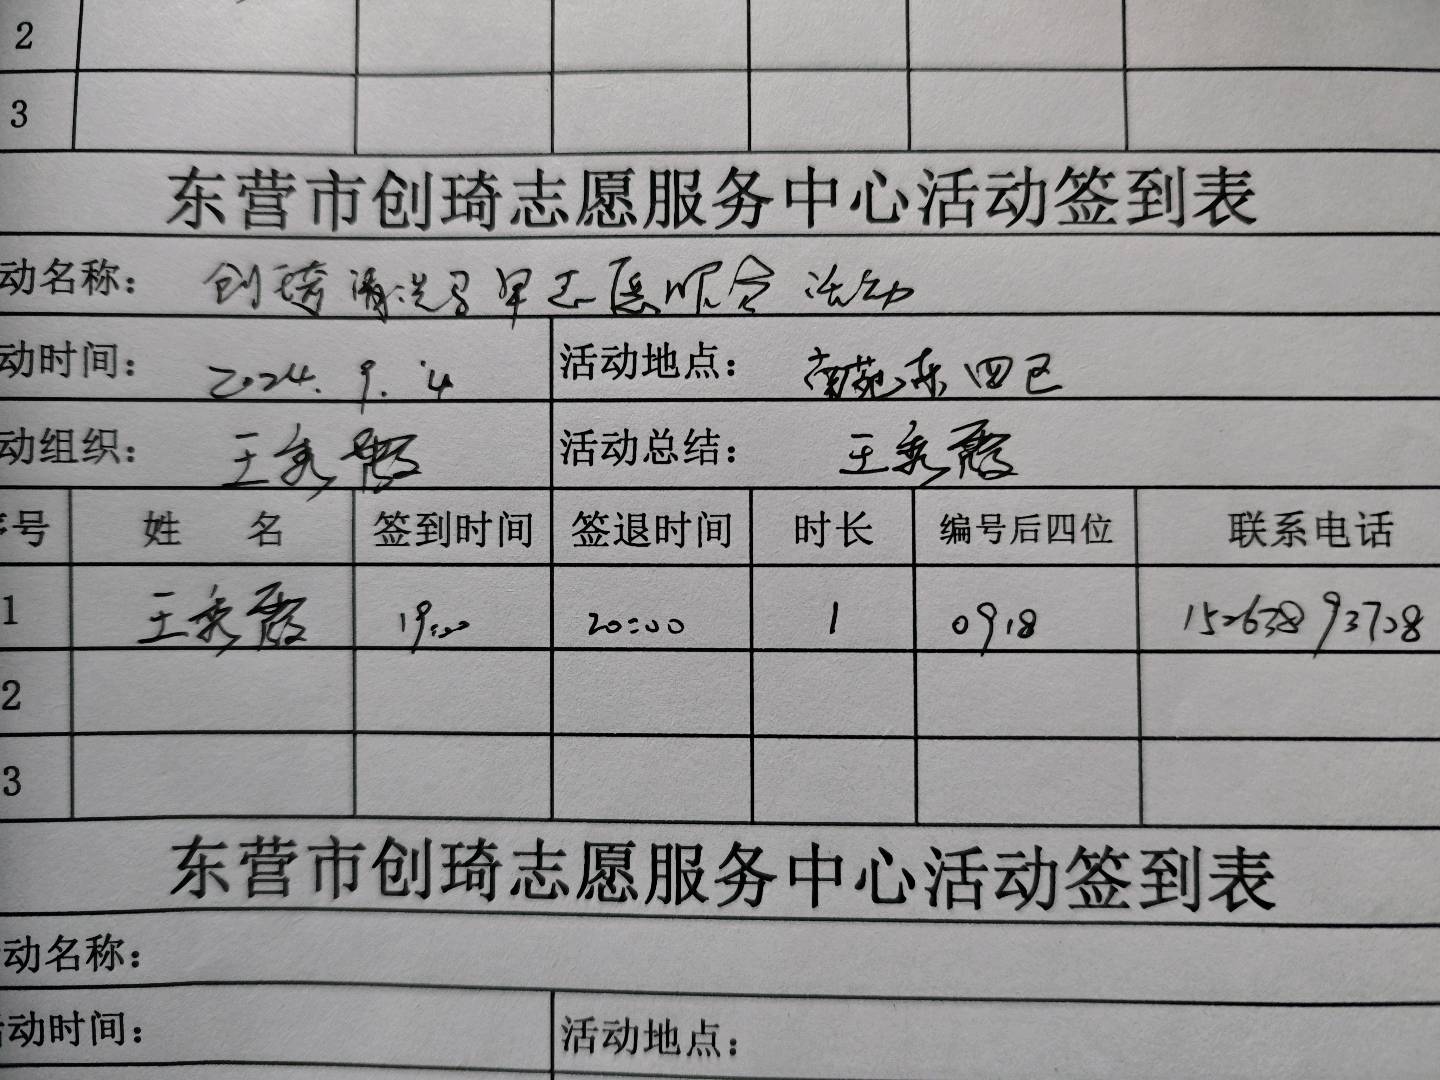 2
3
东营市创琦志愿服务中心活动签到表
动名称： 创琦清洗 志愿服务活动
动时间： 2024.9.4 活动地点： 南苑东四区
动组织： 王秀霞 活动总结： 王秀霞
序号 姓 名 签到时间 签退时间 时长 编号后四位 联系电话
1 王秀霞 19:00 20:00 1 0918 15263893708
2
3
东营市创琦志愿服务中心活动签到表
动名称：
活动时间： 活动地点：